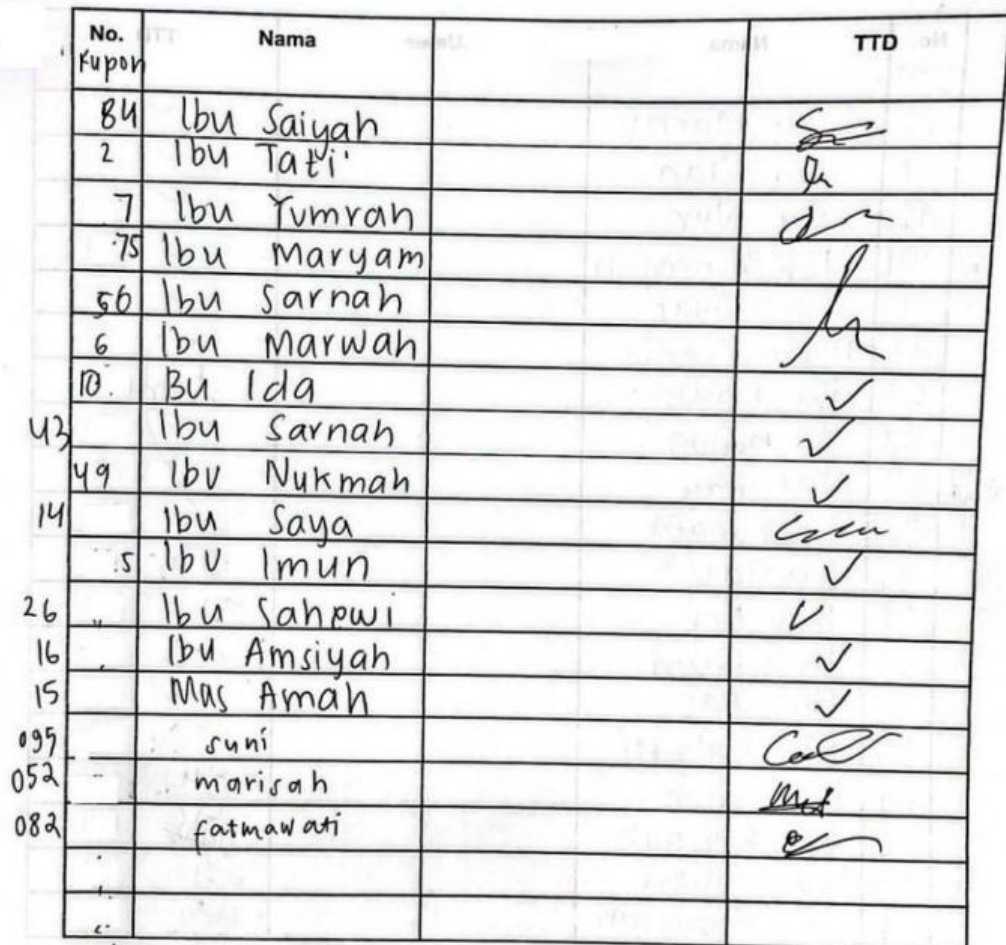 No. Nama TTD
Kupon
84 Ibu Saiyah
2 Ibu Tati
7 Ibu Yumrah
75 Ibu Maryam
56 Ibu Sarnah
6 Ibu Marwah
10. Bu Ida ✓
43 Ibu Sarnah ✓
49 Ibu Nukmah ✓
14 Ibu Saya
5 Ibu Imun ✓
26 Ibu Sahewi ✓
16 Ibu Amsiyah ✓
15 Mas Amah ✓
095 suni
052 marisah
082 fatmawati